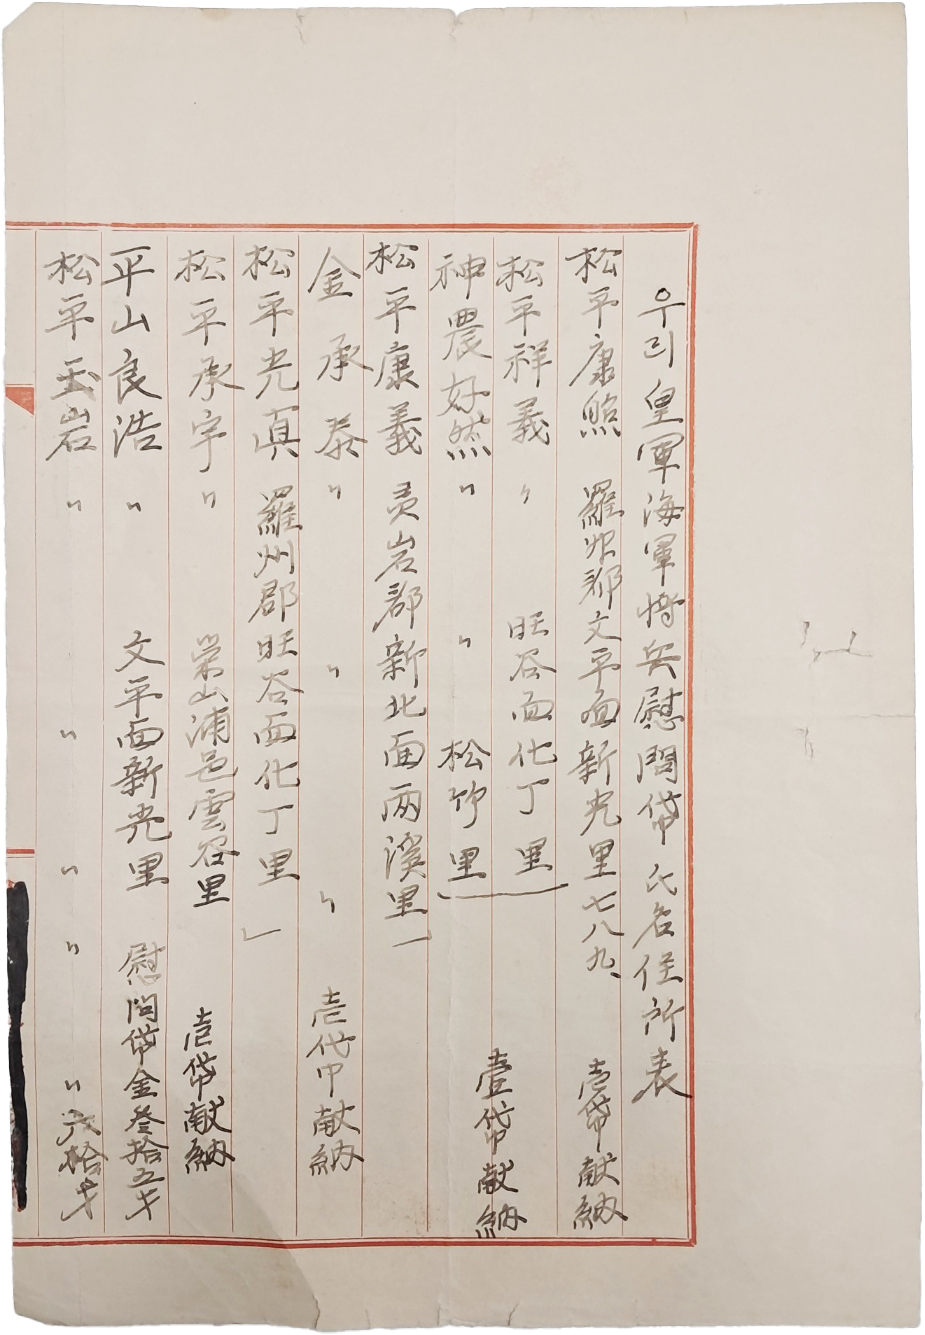 우리 皇軍海軍將兵慰問帒 氏名住所表
松平康煕 羅州郡文平面新光里七八九、 壱帒献納
松平祥義 〃 旺谷面化丁里
神農好然 〃 〃 松竹里 壹帒献納
松平康義 灵岩郡新北面兩溪里
金承泰 〃 〃 〃 壱帒献納
松平光眞 羅州郡旺谷面化丁里
松平承宇 〃 榮山浦邑雲谷里 壱帒献納
平山良浩 〃 文平面新光里 慰问帒金叁拾五才
松平玉岩 〃 〃 〃 〃 〃 六拾才